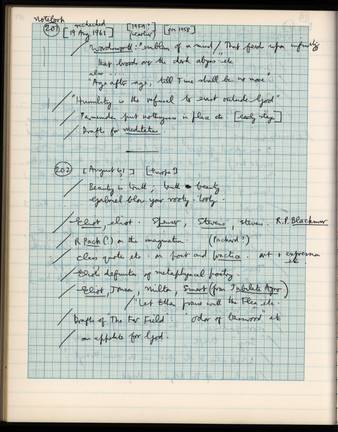 Notebook
(201) [rechecked 19 Aug 1961] [1954? earlier] [jan 1958]
/ Wordsworth: "emblem of a mind / "That feeds upon infinity
that broods over the dark abyss etc
also
"Age after age, till Time shall be no more"
/ "Humility is the refusal to exist outside God"
/ Parmenides put nothingness in place etc [early stage]
/ Drafts for meditation
(202) [August 61] [Europe]
/ Beauty is truth; truth beauty
Gabriel blow your rooty tooty.
/ Eliot, eliot. Spenser, Stevens, stevens. R.P. Blackmur
/ R Pach(?) on the imagination (Richard?)
/ class quote etc. on poet and practice. art & expression etc.
/ Eliot's definition of metaphysical poetry.
/ Eliot, Jones, Milton, Smart (from Jubilate Agno)
/ "Let Elkanah praise with the Flea etc.
/ Drafts of The Far Field. odor of basswood" etc
/ an appetite for God.